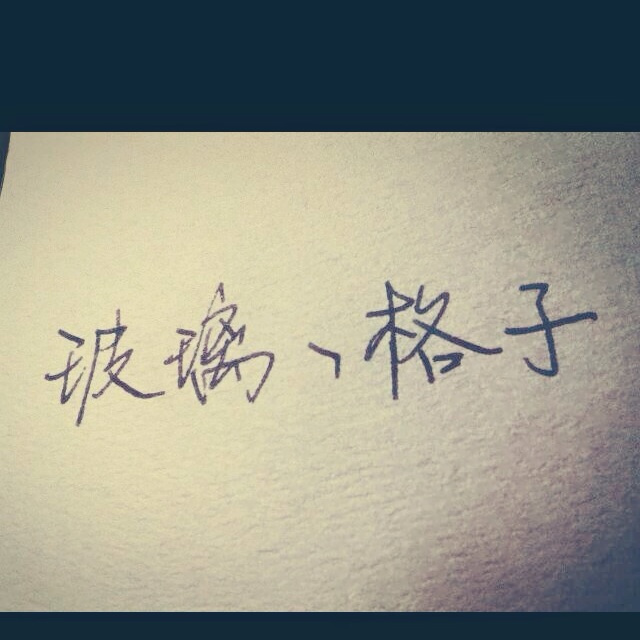 玻璃、格子